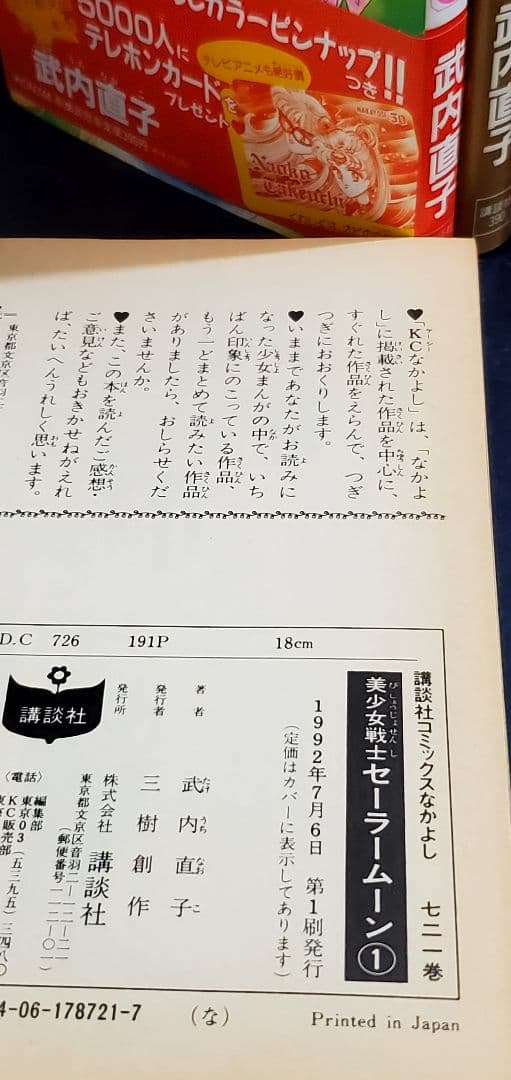 カラーピンナップ
つき!!
5000人に
テレホンカードを
プレゼント
テレビアニメも絶好調
武内直子
NAKAYOSI 30
Naoko
Takeuchi
武内直子
武内直子
講談社
390
♥「KCなかよし」は、「なかよ
し」に掲載された作品を中心に、
すぐれた作品をえらんで、つぎ
つぎにおおくりします。
♥いままであなたがお読みに
なった少女まんがの中で、いち
ばん印象にのこっている作品、
もう一どまとめて読みたい作品
がありましたら、おしらせくだ
さいませんか。
♥また、この本を読んだご感想・
ご意見などもおきかせねがえれ
ば、たいへんうれしく思います。
東京都文京区音羽二
D.C 726 191P 18cm
講談社コミックスなかよし 七二一巻
美少女戦士セーラームーン①
1992年7月6日 第1刷発行
(定価はカバーに表示してあります)
著者 武内直子
発行者 三樹創作
発行所 株式会社 講談社
東京都文京区音羽二—一二—二一
(郵便番号一一二—〇一)
〈電話〉
編集部
東京03(五三九五)三四八〇
KC販売部
講談社
4-06-178721-7 (な) Printed in Japan